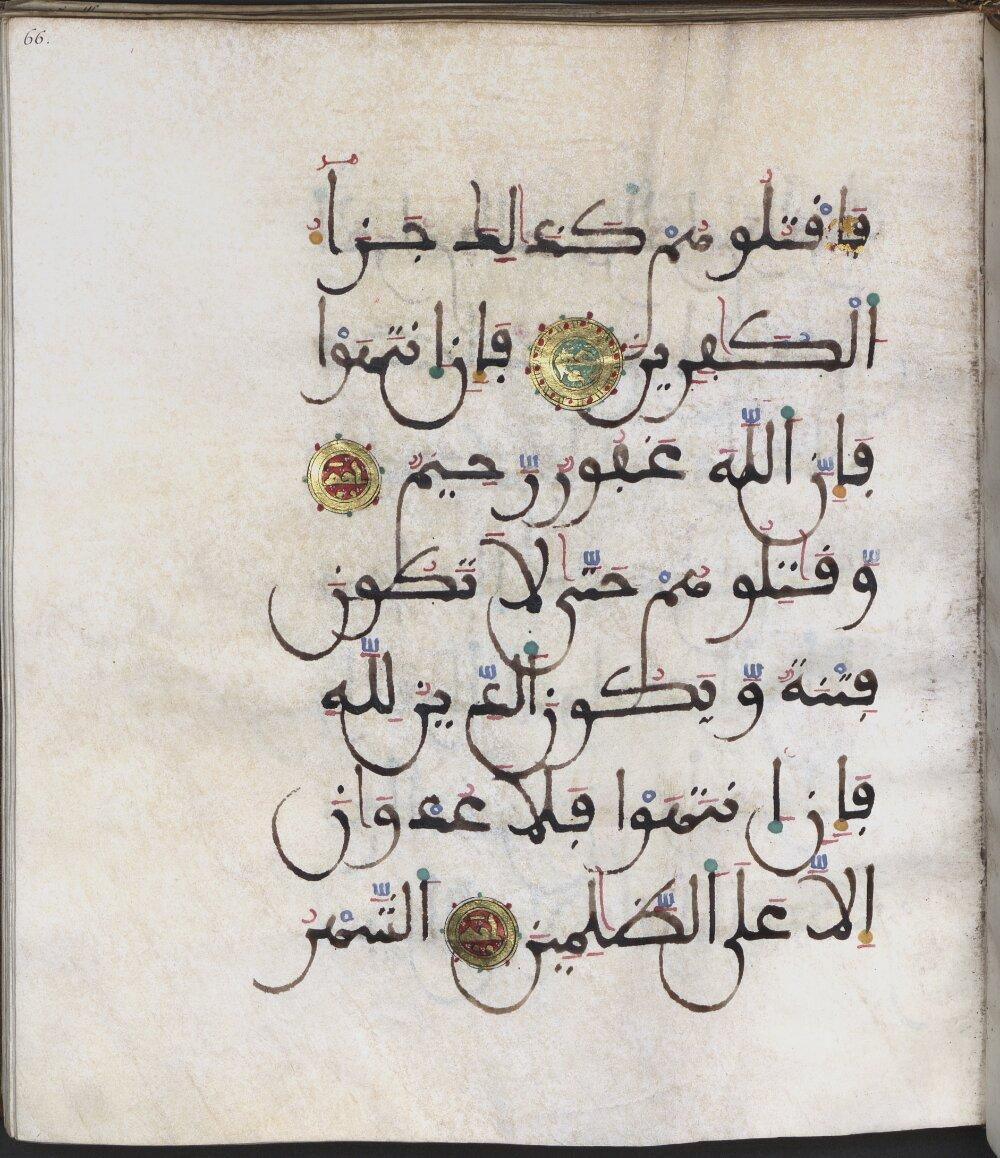 66.
فَاقْتُلُوهُمْ كَذَٰلِكَ جَزَآءُ
اَ۬لْكَٰفِرِينَ فَإِنِ اِ۪نتَهَوْا
فَإِنَّ اَ۬للَّهَ غَفُورٌ رَّحِيمٌ
وَّقَٰتِلُوهُمْ حَتَّىٰ لَا تَكُونَ
فِتْنَةٌ وَّيَكُونَ اَ۬لدِّينُ لِلَّهِ
فَإِنِ اِ۪نتَهَوْا فَلَا عُدْوَانَ
إِلَّا عَلَى اَ۬لظَّٰلِمِينَ اَ۬لشَّهْرُ